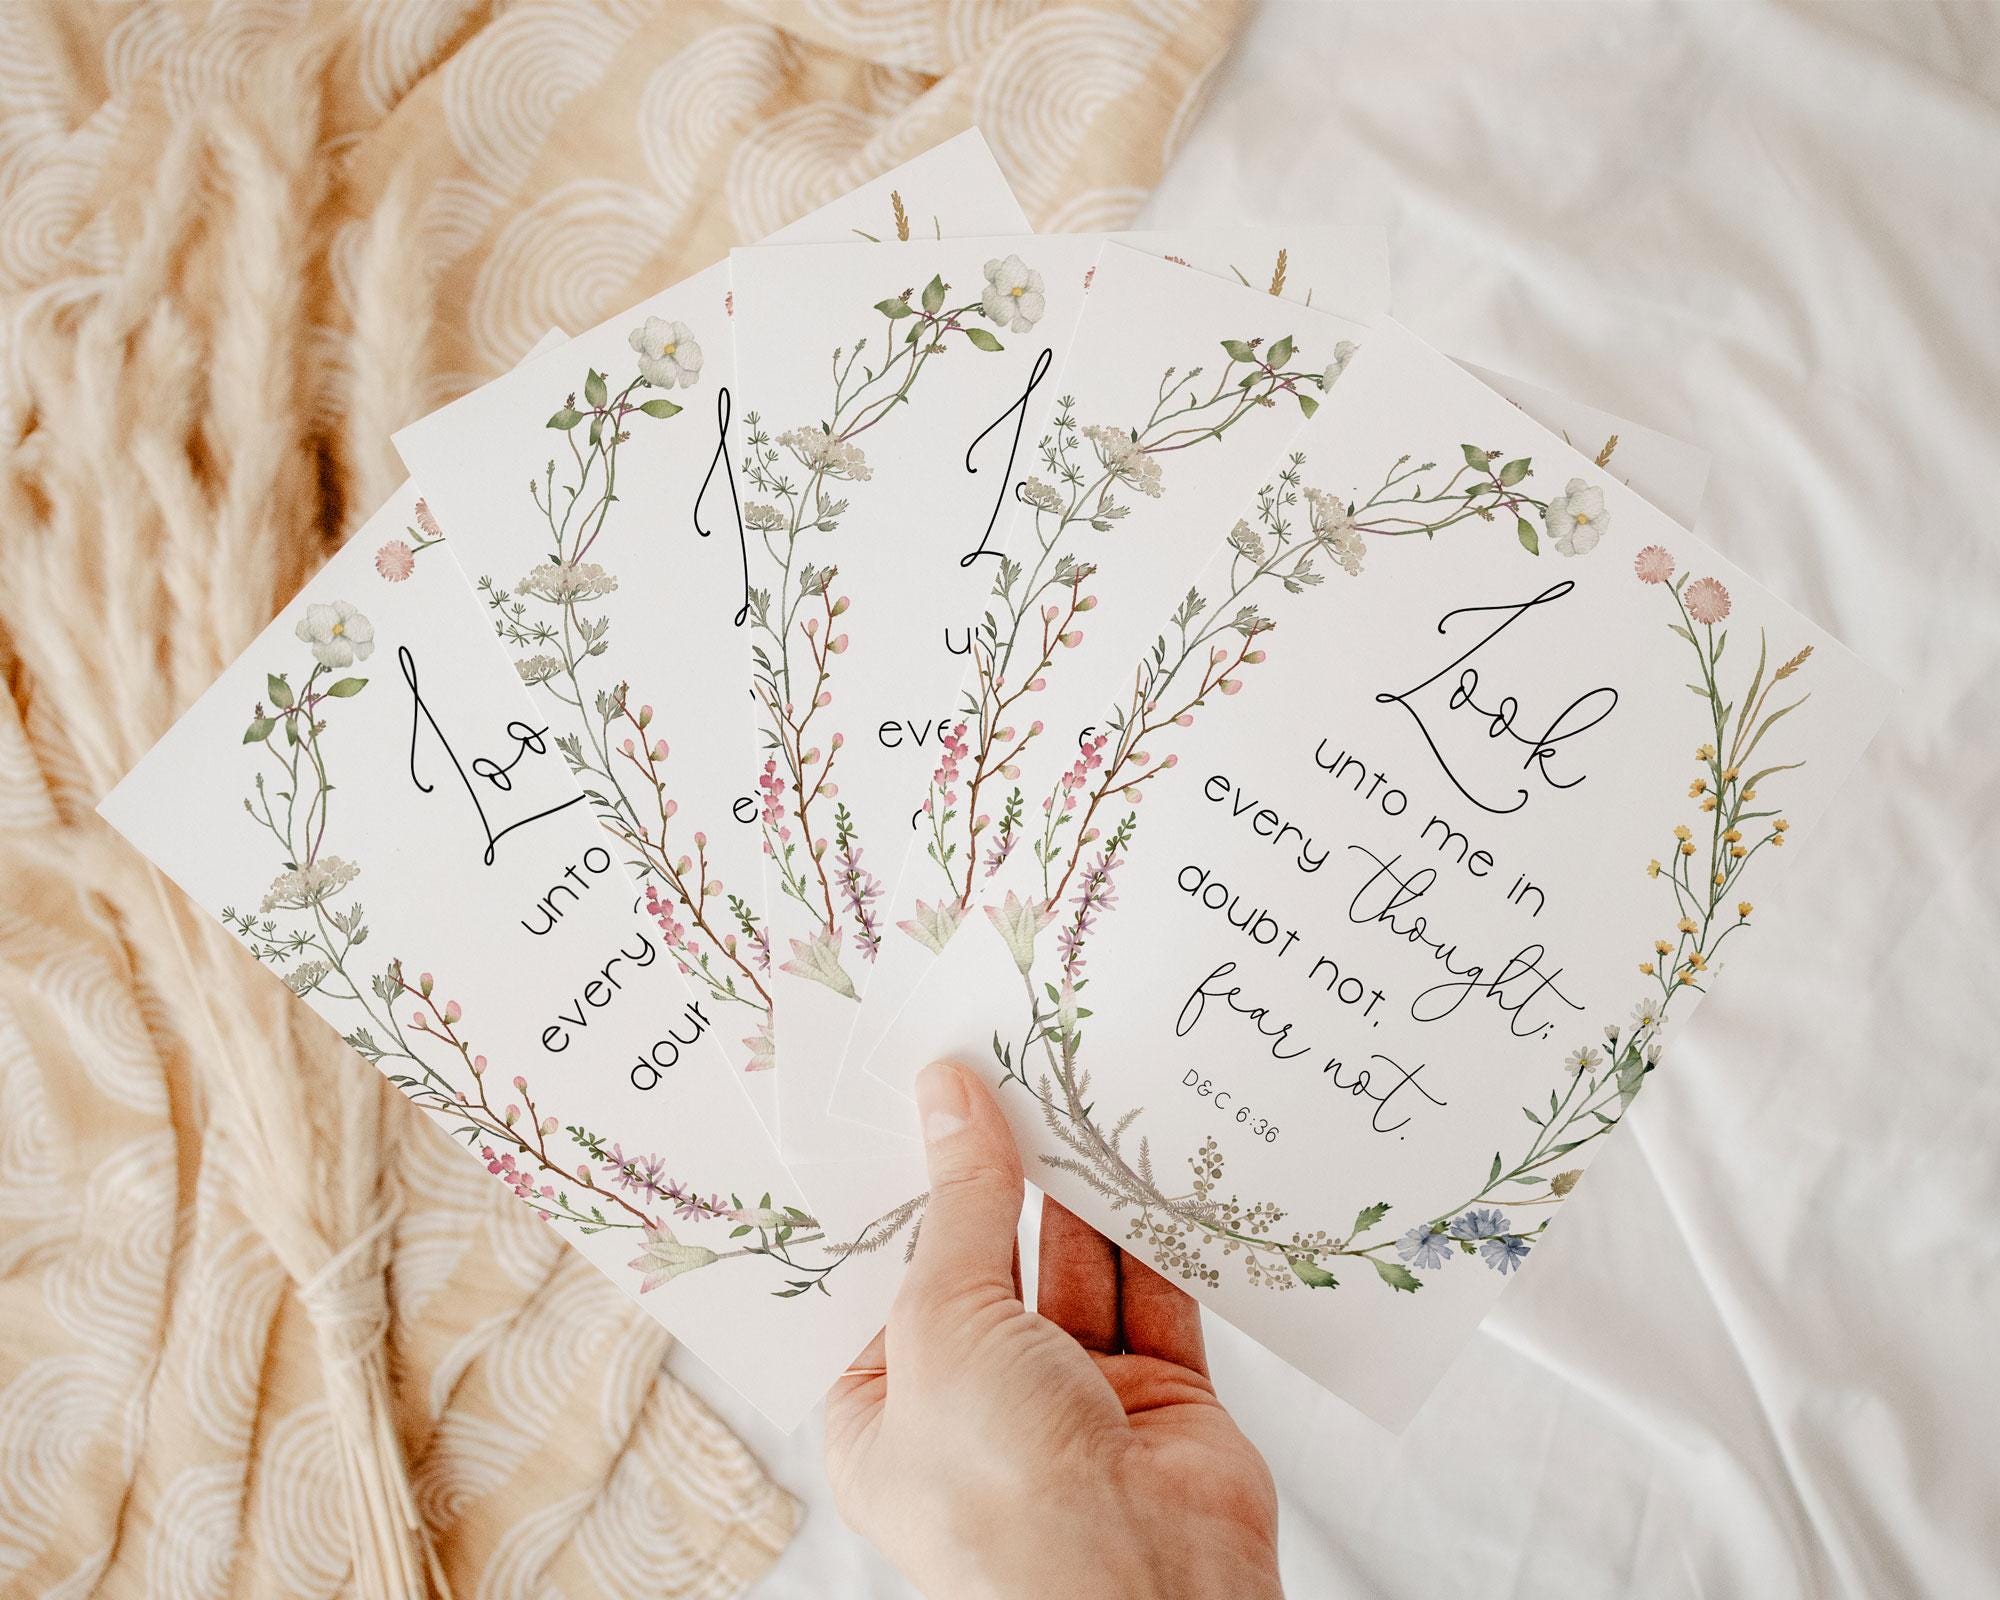 Loo
unto
every
dou
Look
unto me in
every thought;
doubt not,
fear not.
D&C 6:36